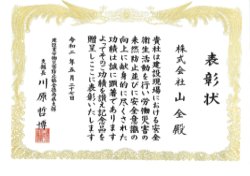 表彰状
株式会社 山全殿
貴社は建設現場における安全
衛生活動を行い労働災害の
未然防止並びに安全意識の
向上に献身的に尽くされた
功績は誠に顕著であります
よってその功績を讃え記念品を
贈呈しここに表彰いたします
令和二年五月二十七日
川原哲博